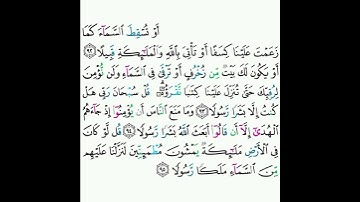 أَوْ تُسْقِطَ السَّمَآءَ كَمَا
زَعَمْتَ عَلَيْنَا كِسَفًا أَوْ تَأْتِىَ بِٱللَّهِ وَٱلْمَلَٰٓئِكَةِ قَبِيلًا ٩٢
أَوْ يَكُونَ لَكَ بَيْتٌ مِّن زُخْرُفٍ أَوْ تَرْقَىٰ فِى ٱلسَّمَآءِ وَلَن نُّؤْمِنَ
لِرُقِيِّكَ حَتَّىٰ تُنَزِّلَ عَلَيْنَا كِتَٰبًا نَّقْرَؤُهُۥ ۗ قُلْ سُبْحَانَ رَبِّى هَلْ
كُنتُ إِلَّا بَشَرًا رَّسُولًا ٩٣ وَمَا مَنَعَ ٱلنَّاسَ أَن يُؤْمِنُوٓا۟ إِذْ جَآءَهُمُ
ٱلْهُدَىٰٓ إِلَّآ أَن قَالُوٓا۟ أَبَعَثَ ٱللَّهُ بَشَرًا رَّسُولًا ٩٤ قُل لَّوْ كَانَ
فِى ٱلْأَرْضِ مَلَٰٓئِكَةٌ يَمْشُونَ مُطْمَئِنِّينَ لَنَزَّلْنَا عَلَيْهِم
مِّنَ ٱلسَّمَآءِ مَلَكًا رَّسُولًا ٩٥